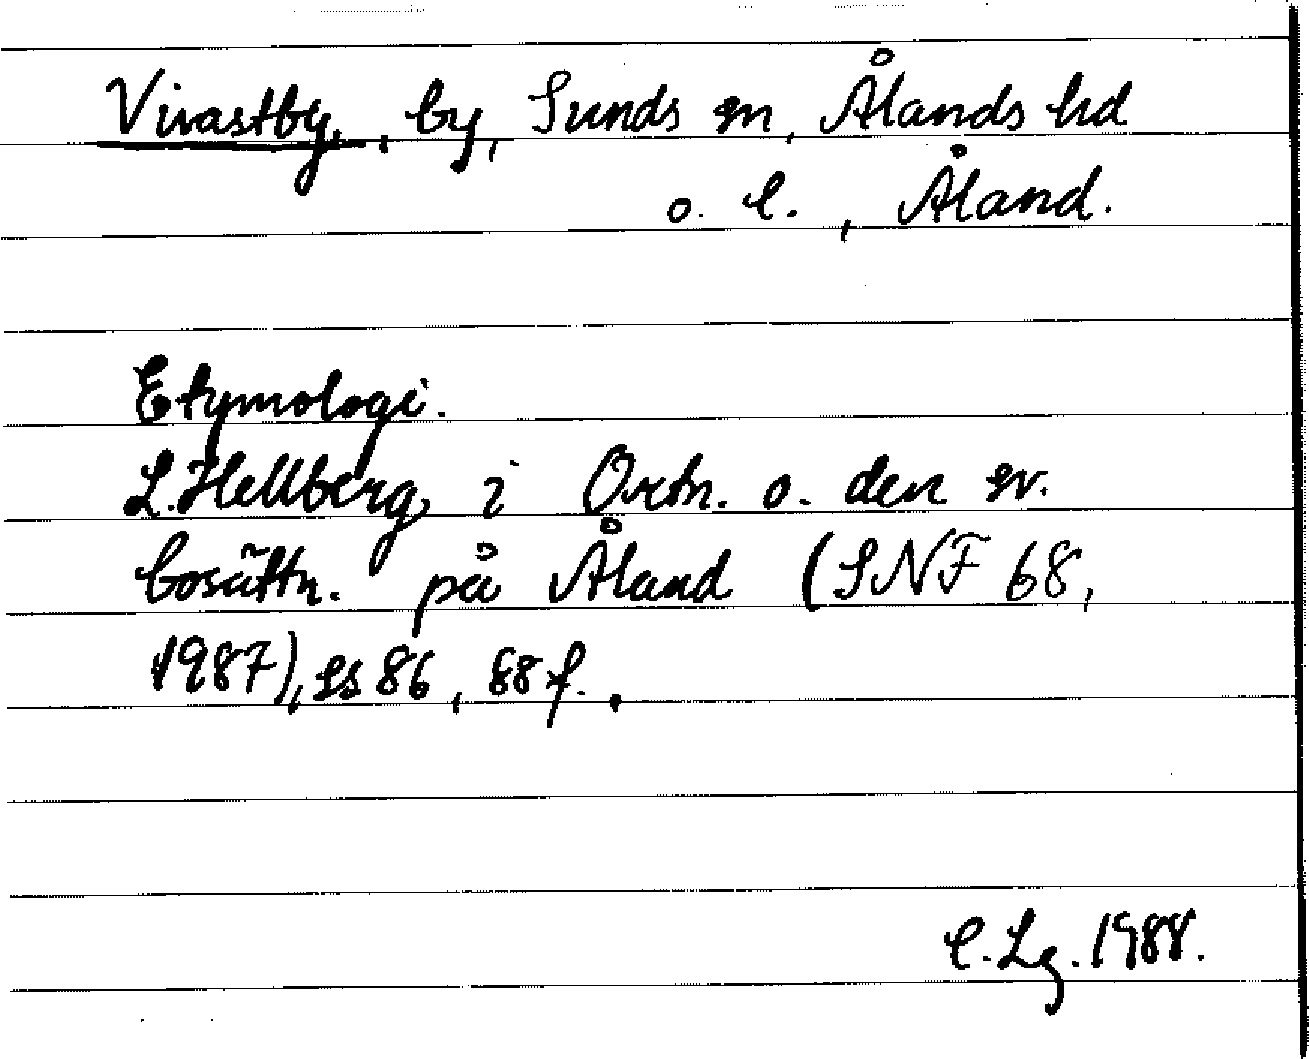 Vivastby, by, Sunds sn, Ålands hd
o. l., Åland.
Etymologi.
L. Hellberg, i Ortn. o. den sv.
bosättn. på Åland (SNF 68,
1987), ss 86, 88 f.
C. Lg. 1988.